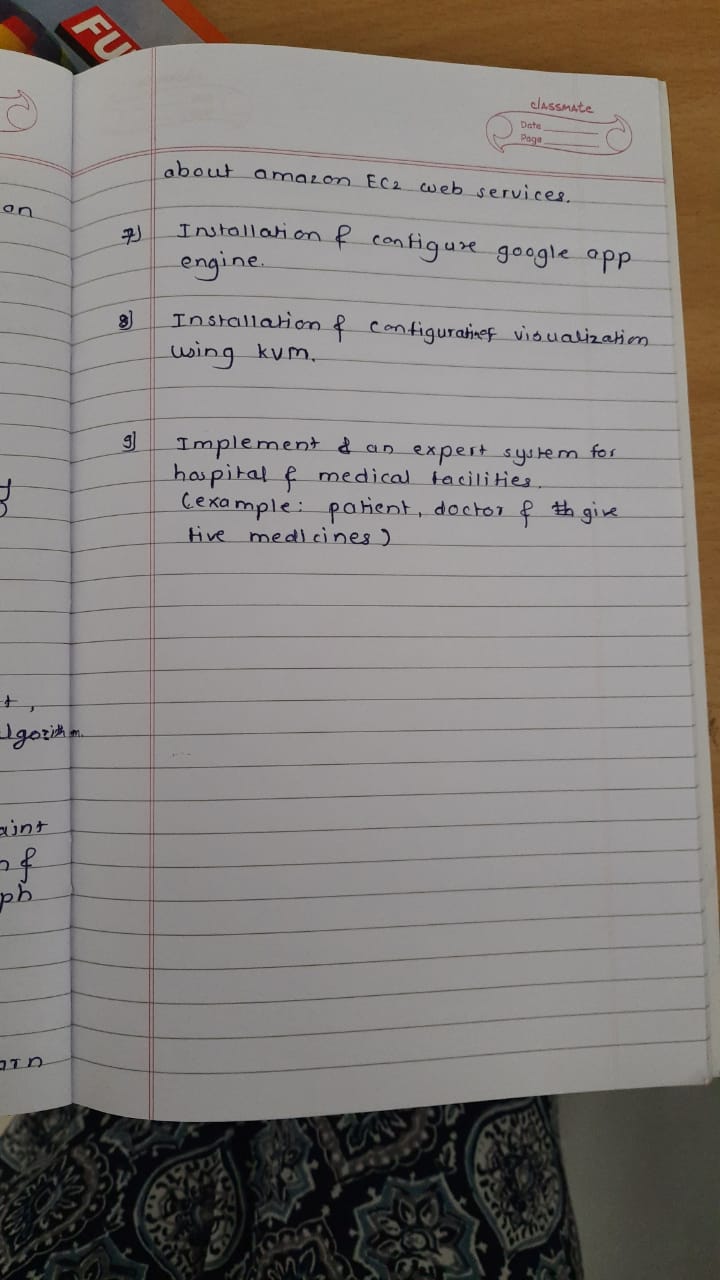 FU
classmate
Date
Page
about amazon EC2 web services.
on
7] Installation & configure google app
engine.
8] Installation & configuration visualization
using kvm.
9] Implement & an expert system for
hospital & medical facilities.
(example: patient, doctor & th give
five medicines)
t,
lgorithm.
aint
n &
ph